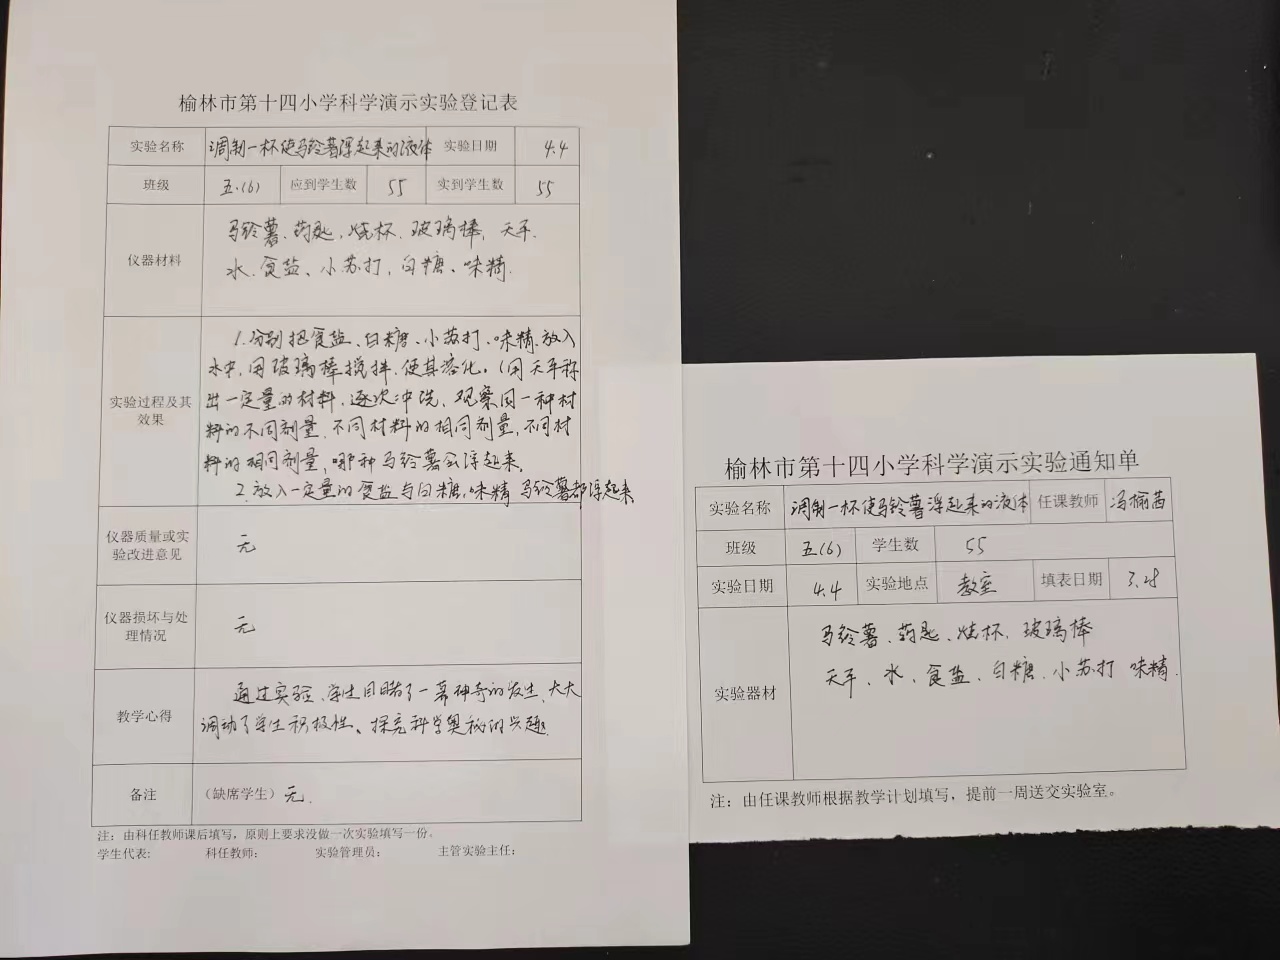 榆林市第十四小学科学演示实验登记表
实验名称 调制一杯使马铃薯浮起来的液体 实验日期 4.4
班级 五.(6) 应到学生数 55 实到学生数 55
仪器材料
马铃薯、药匙、烧杯、玻璃棒、天平、
水、食盐、小苏打、白糖、味精.
实验过程及其
效果
1.分别把食盐、白糖、小苏打、味精放入
水中,用玻璃棒搅拌,使其溶化。(用天平称
出一定量的材料,逐次冲洗,观察同一种材
料的不同剂量,不同材料的相同剂量,不同材
料的相同剂量,哪种马铃薯会浮起来。
2.放入一定量的食盐与白糖,味精 马铃薯都浮起来
仪器质量或实
验改进意见
无
仪器损坏与处
理情况
无
教学心得
通过实验、学生目睹了一幕神奇的发生、大大
调动了学生积极性、探究科学奥秘的兴趣.
备注 (缺席学生) 无.
注:由科任教师课后填写,原则上要求没做一次实验填写一份.
学生代表: 科任教师: 实验管理员: 主管实验主任:
榆林市第十四小学科学演示实验通知单
实验名称 调制一杯使马铃薯浮起来的液体 任课教师 冯榆茜
班级 五(6) 学生数 55
实验日期 4.4 实验地点 教室 填表日期 3.28
实验器材
马铃薯、药匙、烧杯、玻璃棒
天平、水、食盐、白糖、小苏打 味精.
注:由任课教师根据教学计划填写,提前一周送交实验室。